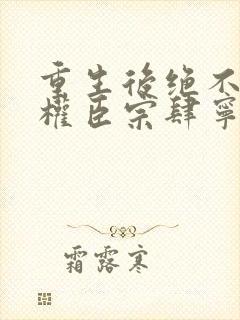 重生後绝不
權臣宗肆寧
霜露寒